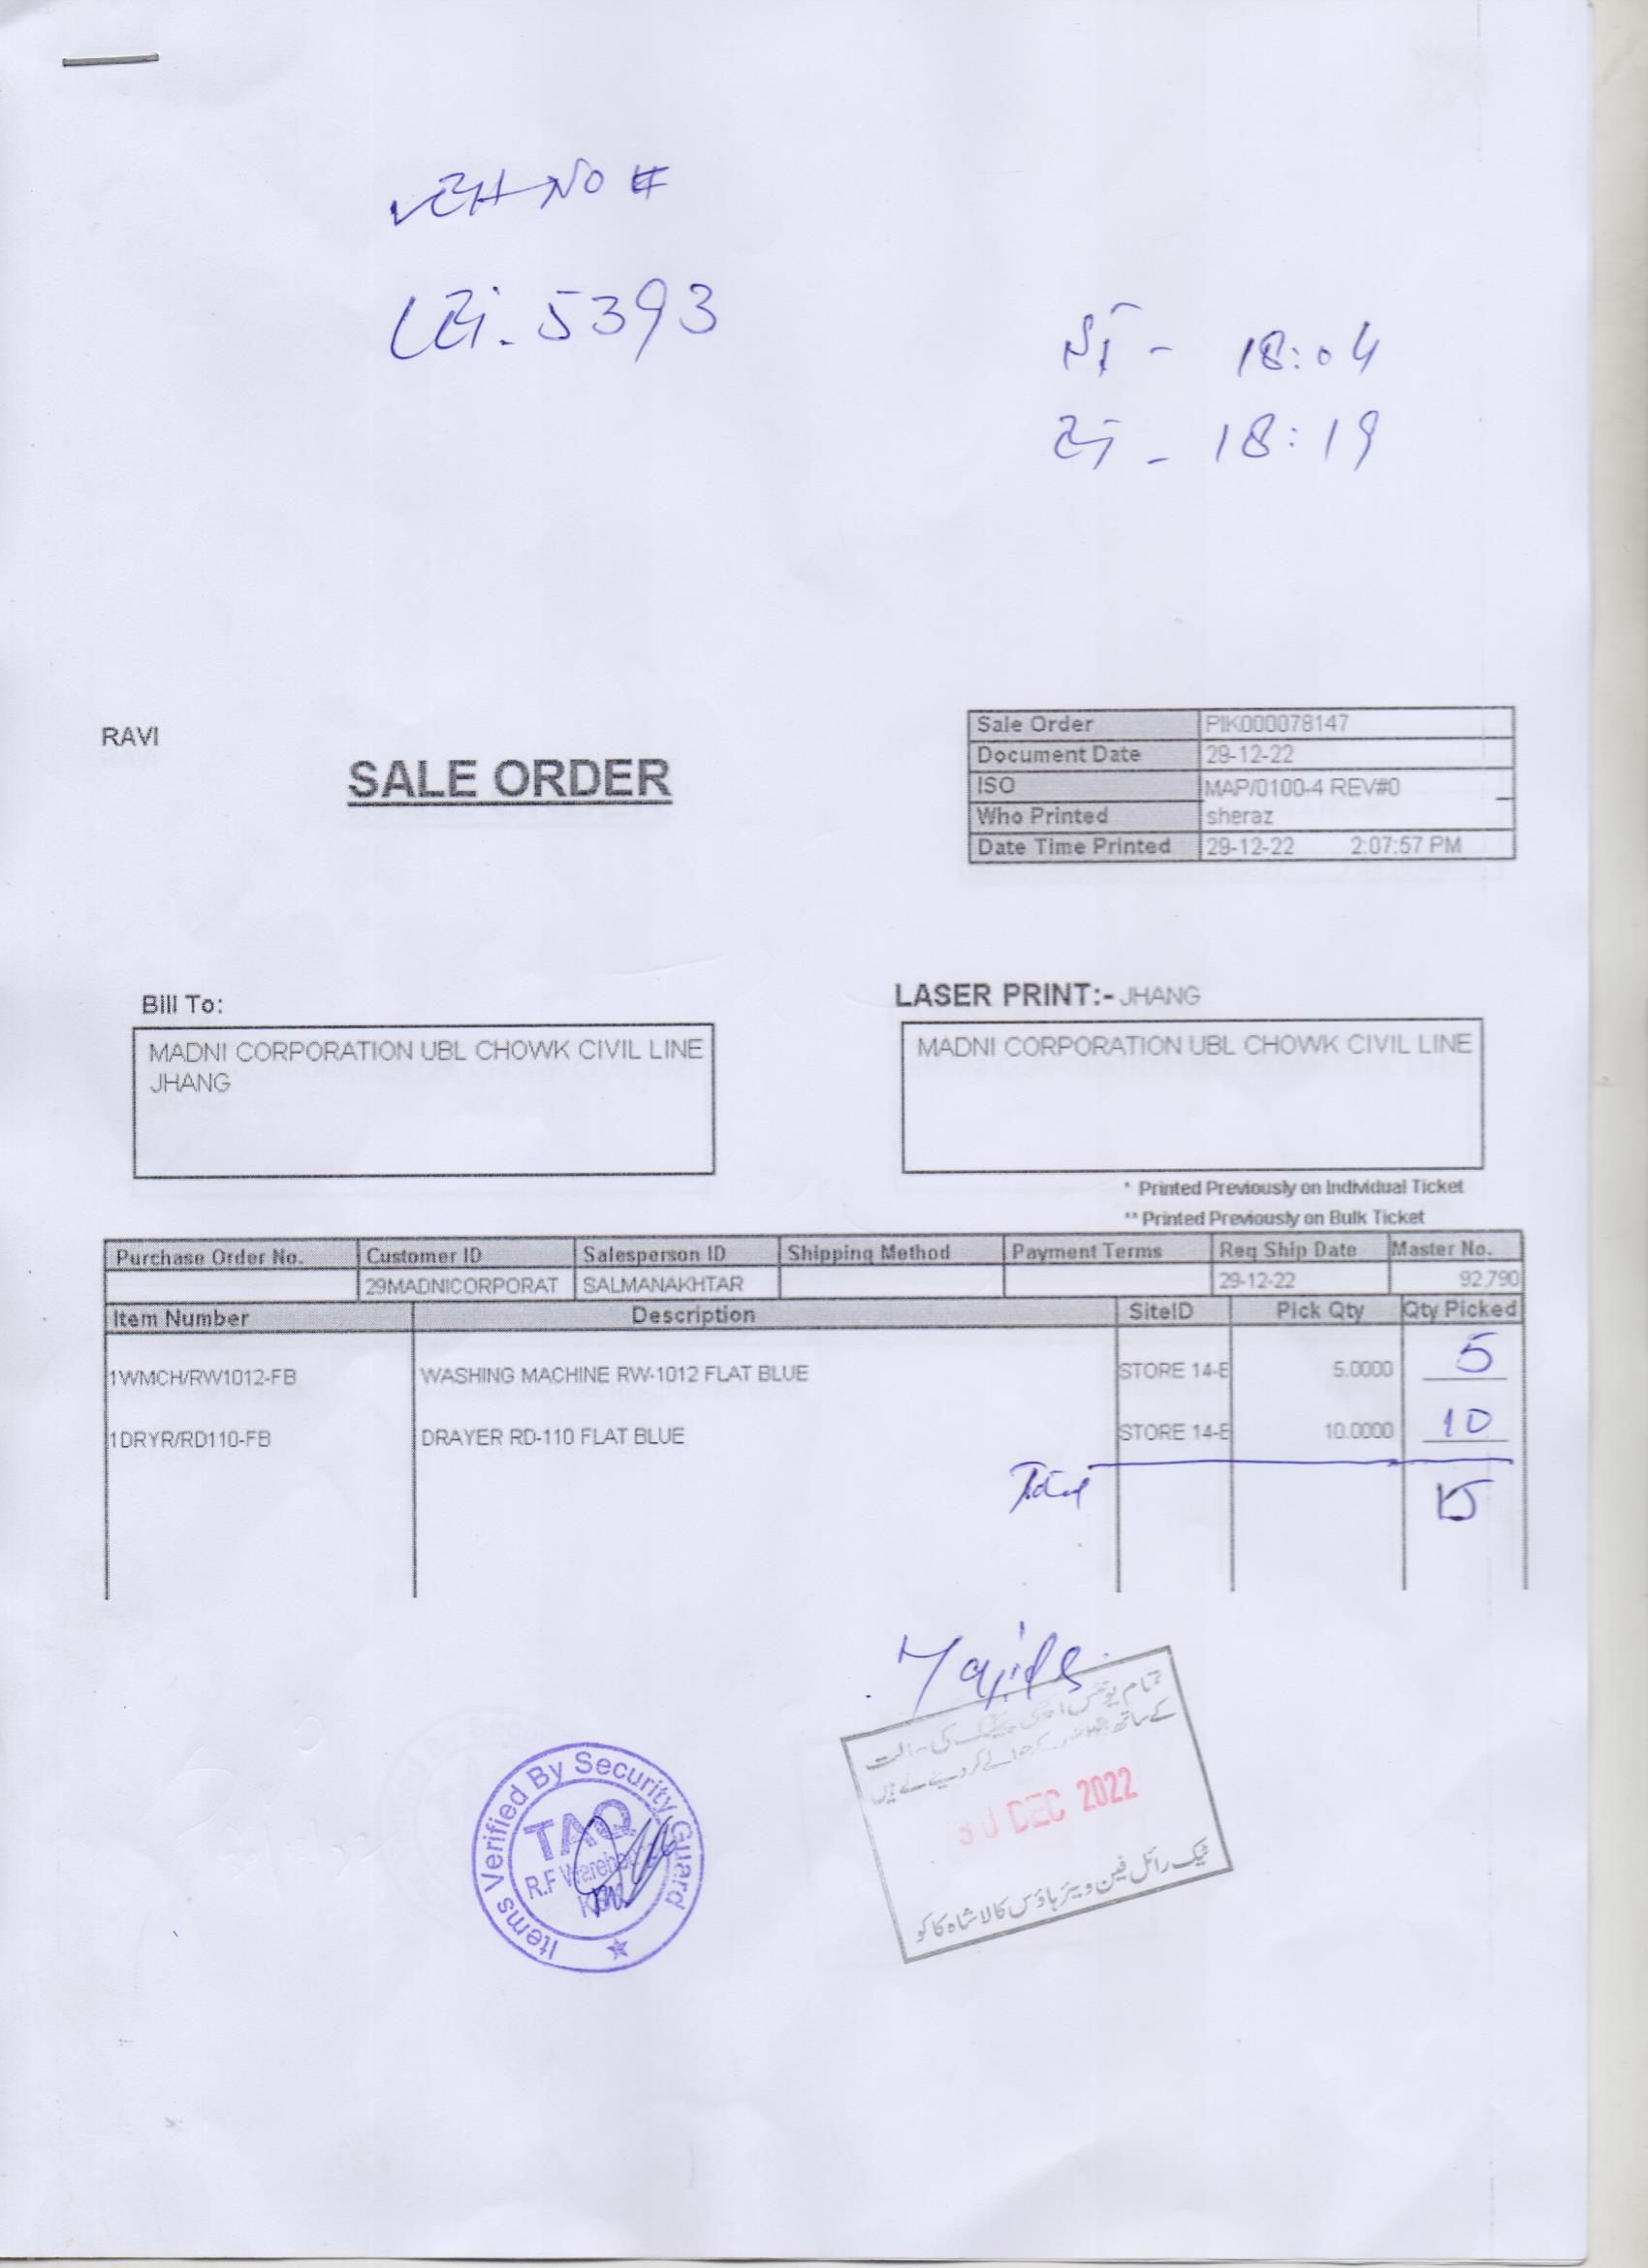 VEH NO #
LEi. 5393
18:04
18:19
RAVI
SALE ORDER
Sale Order PIK000078147
Document Date 29-12-22
ISO MAP/0100-4 REV#0
Who Printed sheraz
Date Time Printed 29-12-22 2:07:57 PM
Bill To:
MADNI CORPORATION UBL CHOWK CIVIL LINE
JHANG
LASER PRINT:- JHANG
MADNI CORPORATION UBL CHOWK CIVIL LINE
* Printed Previously on Individual Ticket
** Printed Previously on Bulk Ticket
Purchase Order No. Customer ID Salesperson ID Shipping Method Payment Terms Req Ship Date Master No.
29MADNICORPORAT SALMANAKHTAR 29-12-22 92,790
Item Number Description SiteID Pick Qty Qty Picked
1WMCH/RW1012-FB WASHING MACHINE RW-1012 FLAT BLUE STORE 14-E 5.0000 5
1DRYR/RD110-FB DRAYER RD-110 FLAT BLUE STORE 14-E 10.0000 10
Total 15
Items Verified By Security Guard
TAQ
R.F Warehouse
تمام یونٹس اچھی پیکنگ کی حالت
کے ساتھ
30 DEC 2022
ٹیک رائل فین ویئر ہاؤس کالا شاہ کاکو